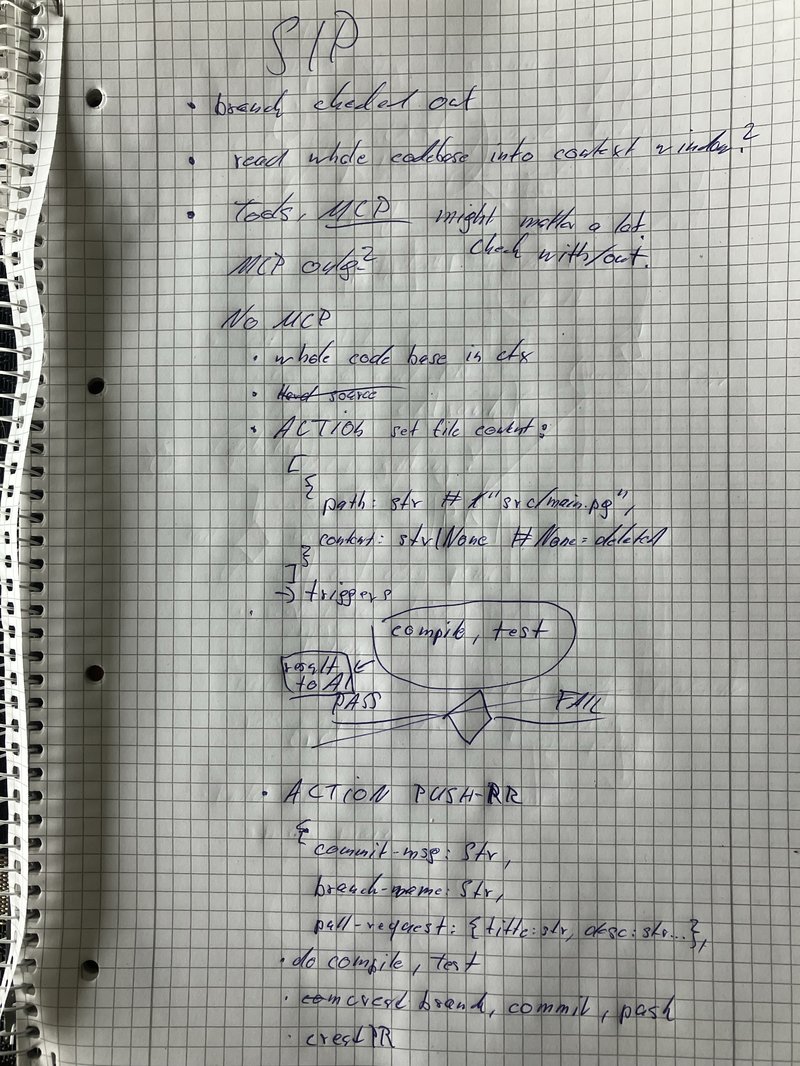 SIP
• branch checked out
• read whole codebase into context window?
• Tools, MCP might matter a lot.
check with/out.
MCP only?
No MCP
• whole code base in ctx
• ACTION set file content:
[
{
path: str # "src/main.pg",
content: str|None # None = deleted
}
]
→ triggers
compile, test
result
to AI
PASS
FAIL
• ACTION PUSH-PR
{
commit-msg: str,
branch-name: str,
pull-request: {title:str, desc:str...},
• do compile, test
• creat branch, commit, push
• creat PR